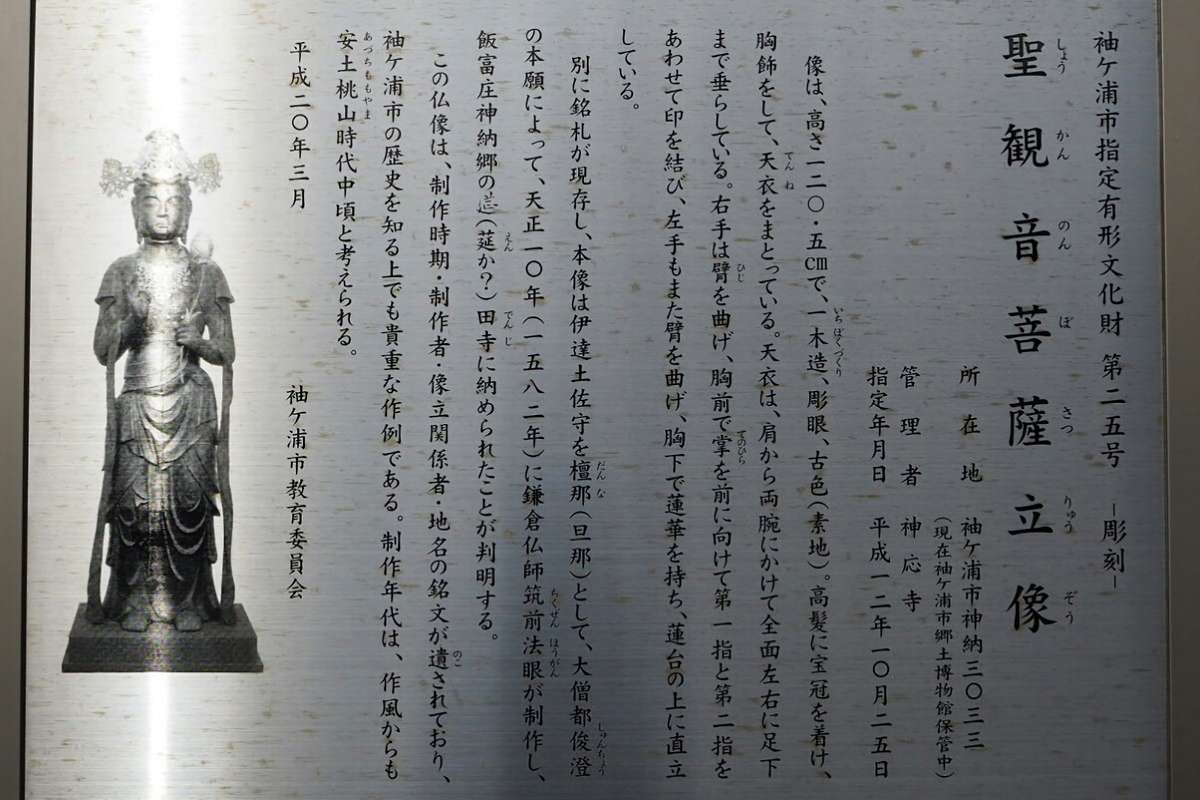 袖ケ浦市指定有形文化財 第二五号 ―彫刻―
聖観音菩薩立像
しょうかんのんぼさつりゅうぞう
所在地 袖ケ浦市神納三〇三三
(現在袖ケ浦市郷土博物館保管中)
管理者 神応寺
指定年月日 平成一二年一〇月二五日
像は、高さ一二〇・五㎝で、一木造、彫眼、古色(素地)。高髪に宝冠を着け、
いちぼくづくり
胸飾をして、天衣をまとっている。天衣は、肩から両腕にかけて全面左右に足下
てんね
まで垂らしている。右手は臂を曲げ、胸前で掌を前に向けて第一指と第二指を
ひじ
てのひら
あわせて印を結び、左手もまた臂を曲げ、胸下で蓮華を持ち、蓮台の上に直立
している。
別に銘札が現存し、本像は伊達土佐守を檀那(旦那)として、大僧都俊澄
だんな
しゅんちょう
の本願によって、天正一〇年(一五八二年)に鎌倉仏師筑前法眼が制作し、
ちくぜんほうがん
飯富庄神納郷の(莚か?)田寺に納められたことが判明する。
えん
でんじ
この仏像は、制作時期・制作者・像立関係者・地名の銘文が遺されており、
のこ
袖ケ浦市の歴史を知る上でも貴重な作例である。制作年代は、作風からも
安土桃山時代中頃と考えられる。
あづちももやま
平成二〇年三月
袖ケ浦市教育委員会